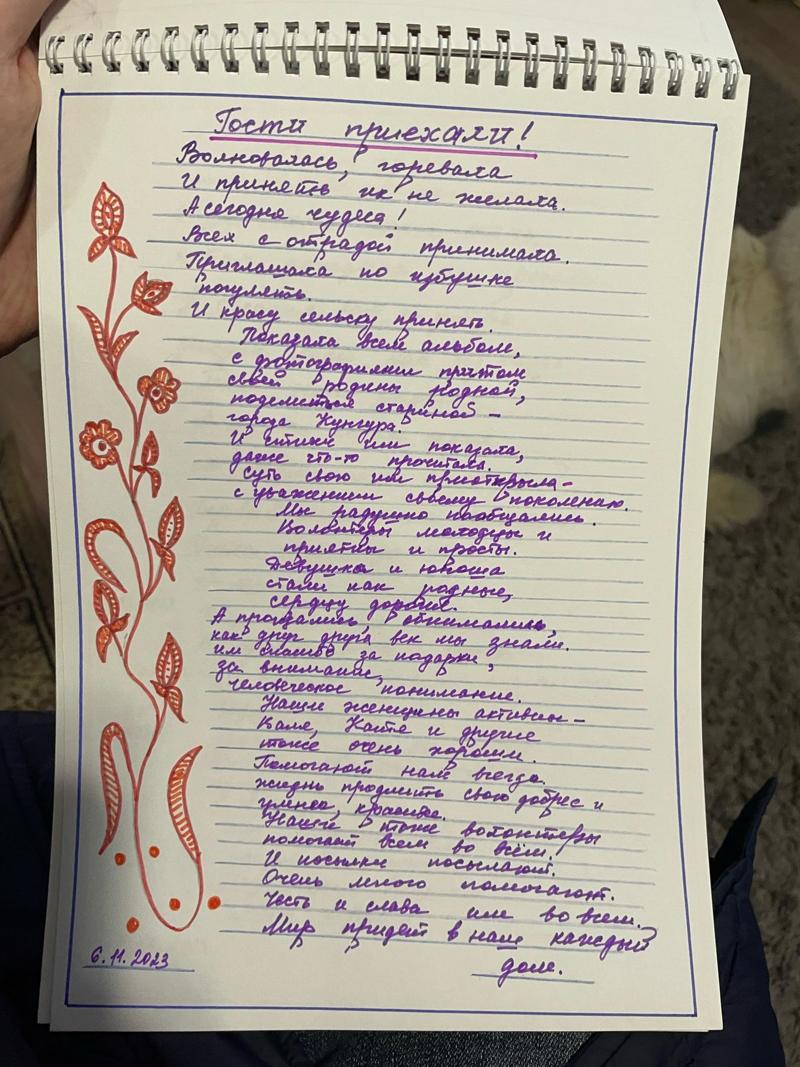 Гости приехали!
Волновалась, горевала
И принять их не желала.
А сегодня чудеса!
Всех с отрадой принимала.
Приглашала по избушке
погулять.
И красу сельску принять.
Показала всем альбом,
с фотографиями притом
своей родины родной,
поделиться стариной –
города Кунгура.
И стихи им показала,
даже что-то прочитала.
Суть свою им приоткрыла –
с уважением своему поколению.
Мы радушно пообщались.
Волонтёры молодцы и
приятны и просты.
Девушка и юноша
стали как родные,
сердцу дорогие.
А прощались обнимались,
как друг друга век мы знали.
им спасибо за подарки,
за внимание,
человеческое понимание.
Наши женщины активны –
Валя, Катя и другие
тоже очень хороши.
Помогают нам всегда.
жизнь продлить свою добрее и
умнее, красивее.
Наши тоже волонтёры
помогают всем во всём.
И посылки посылают.
Очень много помогают.
Честь и слава им во всем.
Мир придет в наш каждый
дом.
6.11.2023